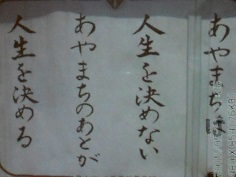 あやまちは
人生を決めない
あやまちのあとが
人生を決める